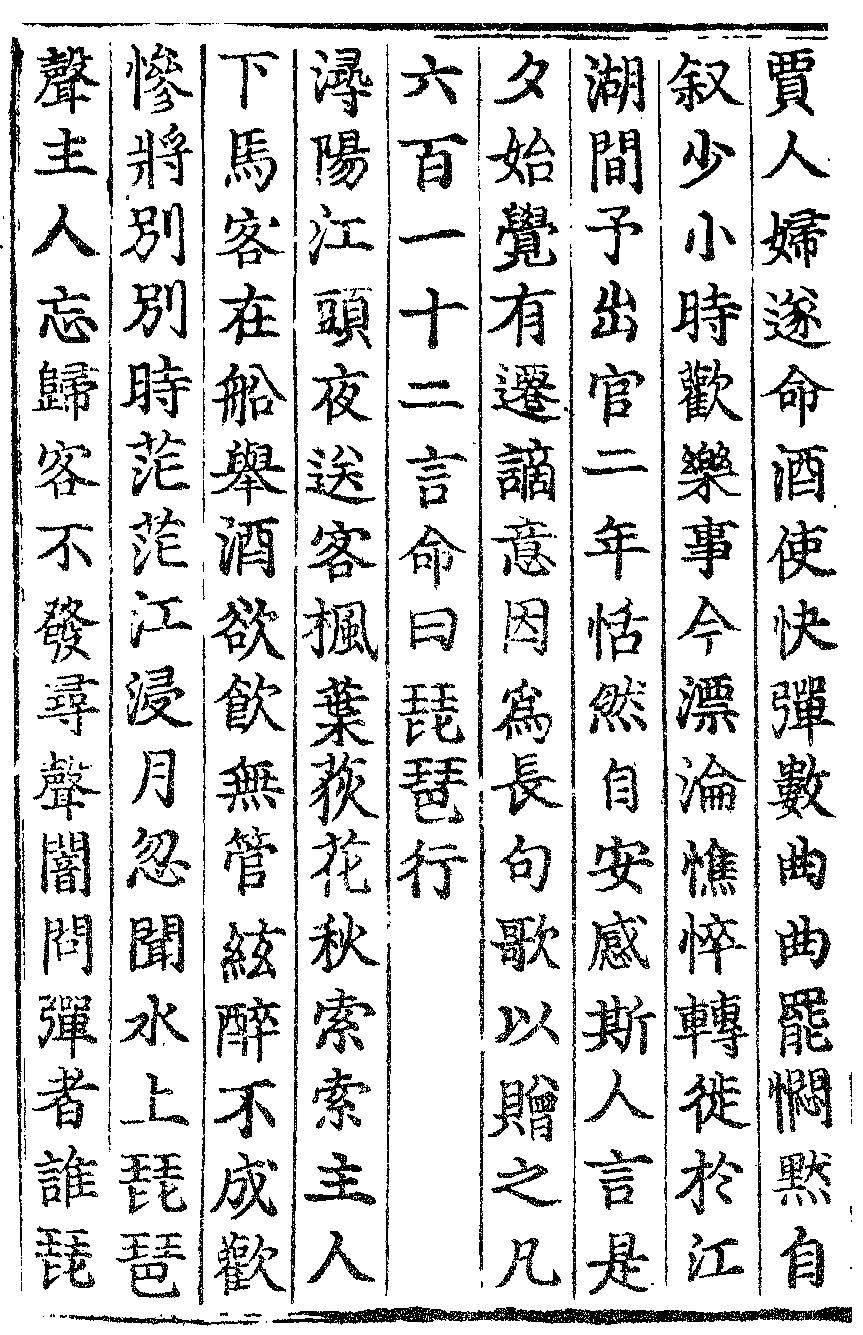 賈人婦遂命酒使快彈數曲曲罷憫黙自
叙少小時歡樂事今漂淪憔悴轉徙於江
湖間予出官二年恬然自安感斯人言是
夕始覺有遷謫意因爲長句歌以贈之凡
六百一十二言命曰琵琶行
潯陽江頭夜送客楓葉荻花秋索索主人
下馬客在船舉酒欲飲無管絃醉不成歡
慘將別別時茫茫江浸月忽聞水上琵琶
聲主人忘歸客不發尋聲闇問彈者誰琵